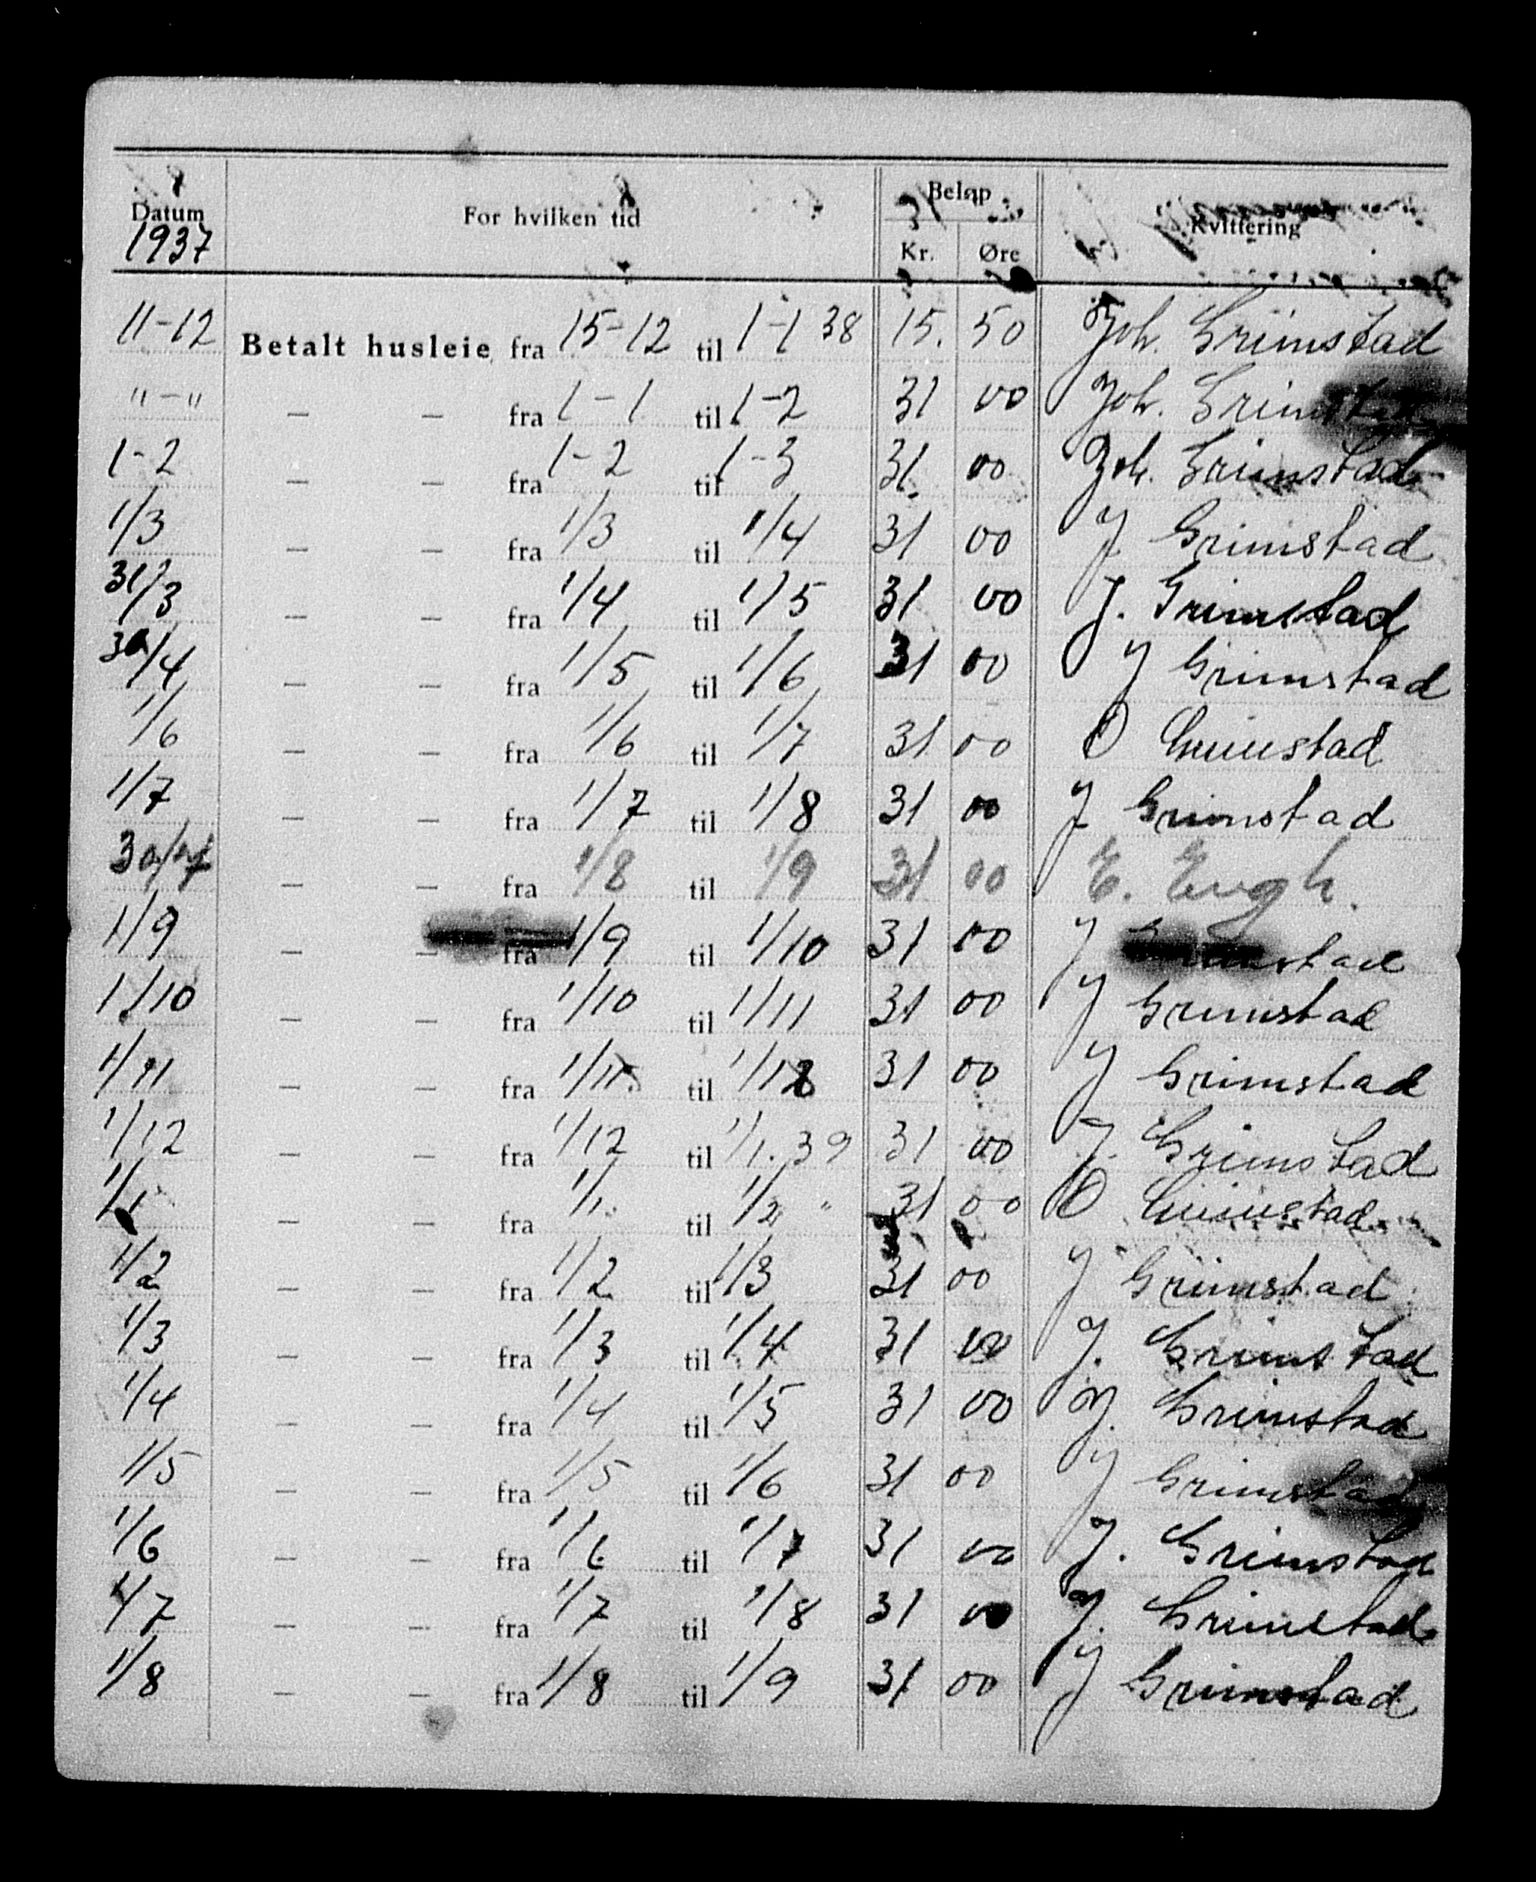 Datum For hvilken tid Beløp Kvittering
1937 Kr. Øre
11-12 Betalt husleie fra 15-12 til 1-1 38 15. 50 Joh. Grimstad
"-" — — fra 1-1 til 1-2 31 00 Joh. Grimstad
1-2 — — fra 1-2 til 1-3 31. 00 Joh. Grimstad
1/3 — — fra 1/3 til 1/4 31 00 J Grimstad
31/3 — — fra 1/4 til 1/5 31 00 J. Grimstad
30/4 — — fra 1/5 til 1/6 31 00 J Grimstad
1/6 — — fra 1/6 til 1/7 31 00 O Grimstad
1/7 — — fra 1/7 til 1/8 31 00 J Grimstad
30/7 — — fra 1/8 til 1/9 31 00 E. Engh.
1/9 — — fra 1/9 til 1/10 31 00 J Grimstad
1/10 — — fra 1/10 til 1/11 31 00 J Grimstad
1/11 — — fra 1/11 til 1/12 31 00 J Grimstad
1/12 — — fra 1/12 til 1/1. 39 31 00 J. Grimstad
1/1 — — fra 1/1. til 1/2 " 31 00 O Grimstad
1/2 — — fra 1/2 til 1/3 31 00 J Grimstad
1/3 — — fra 1/3 til 1/4 31 00 J. Grimstad
1/4 — — fra 1/4 til 1/5 31 00 J. Grimstad
1/5 — — fra 1/5 til 1/6 31 00 J Grimstad
1/6 — — fra 1/6 til 1/7 31 00 J. Grimstad
1/7 — — fra 1/7 til 1/8 31 00 J. Grimstad
1/8 — — fra 1/8 til 1/9 31 00 J Grimstad